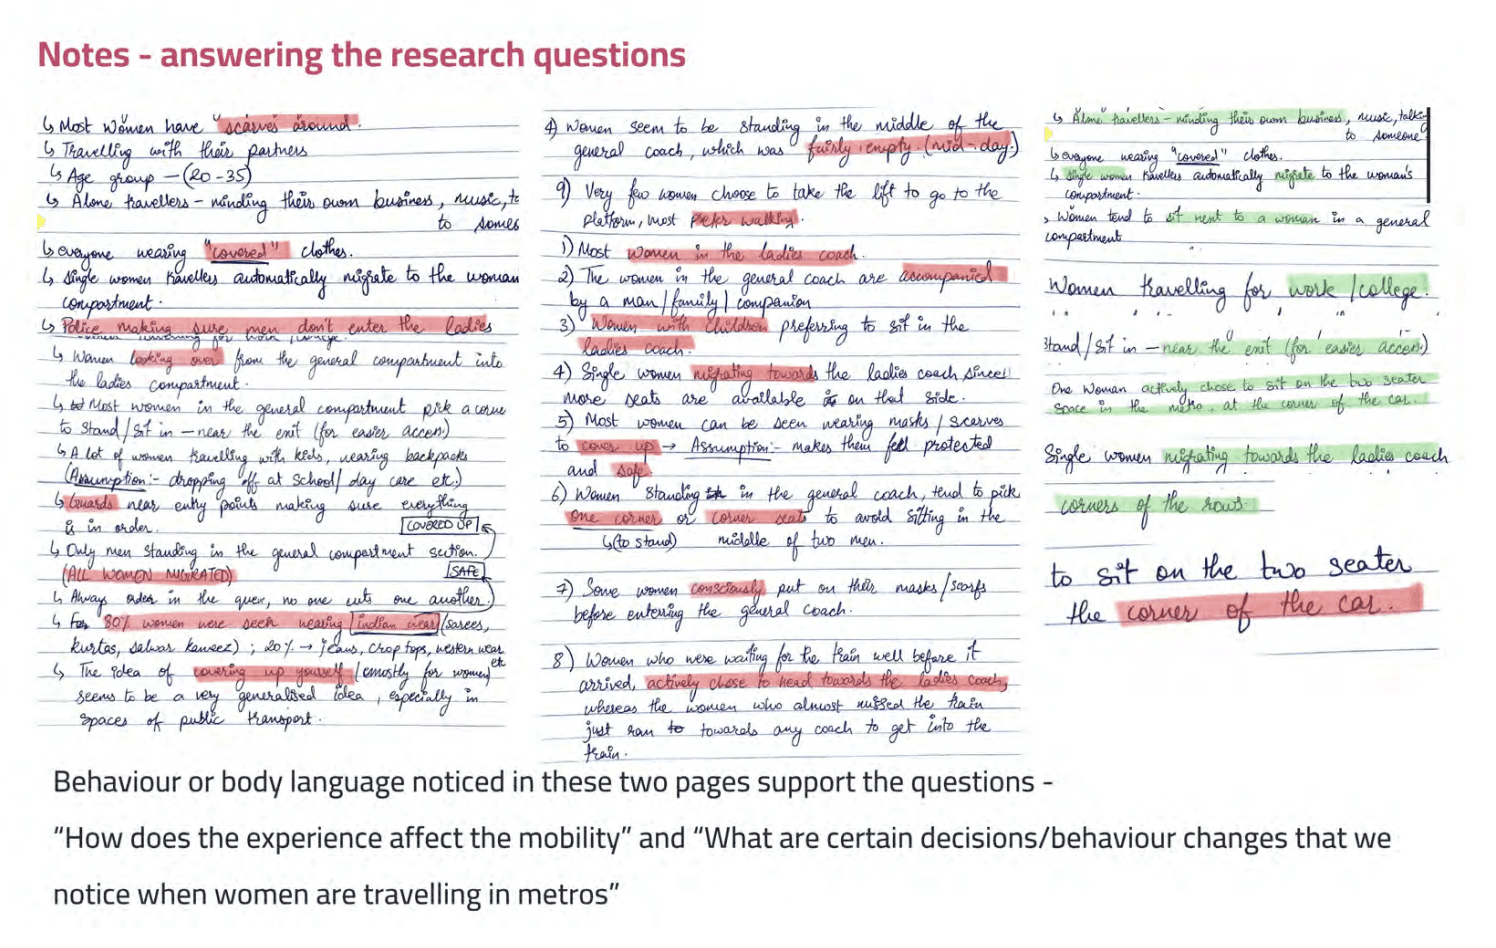 Notes - answering the research questions
↳ Most women have "scarves" around.
↳ Travelling with their partners
↳ Age group — (20-35)
↳ Alone travellers - minding their own business, music, t
to someo
↳ everyone wearing "covered" clothes.
↳ Single women travellers automatically migrate to the woman
compartment.
↳ Police making sure men don't enter the ladies
↳ Women looking over from the general compartment into
the ladies compartment.
↳ Most women in the general compartment pick a corne
to stand/sit in — near the exit (for easier access)
↳ A lot of women travelling with kids, wearing backpacks
(Assumption:- dropping off at school/ day care etc.)
↳ Guards near entry points making sure everything
is in order.
COVERED UP
↳ Only men standing in the general compartment section.
(ALL WOMEN MIGRATED)
SAFE
↳ Always order in the queue, no one cuts one another.
↳ 80% women were seen wearing indian wear (sarees,
kurtas, salwar kameez) ; 20% → jeans, crop tops, western wear
etc
↳ The idea of covering up yourself (mostly for women)
seems to be a very generalised idea, especially in
spaces of public transport.
4) Women seem to be standing in the middle of the
general coach, which was fairly empty (mid-day.)
9) Very few women choose to take the lift to go to the
platform, most prefer walking.
1) Most women in the ladies coach.
2) The women in the general coach are accompanied
by a man / family / companion
3) Women with children preferring to sit in the
ladies coach.
4) Single women migrating towards the ladies coach since
more seats are available on that side.
5) Most women can be seen wearing masks / scarves
to cover up → Assumption:- makes them feel protected
and safe.
6) Women standing in the general coach, tend to pick
one corner or corner seats to avoid sitting in the
↳ (to stand) middle of two men.
7) Some women consciously put on their masks/scarfs
before entering the general coach.
8) Women who were waiting for the train well before it
arrived, actively chose to head towards the ladies coach,
whereas the women who almost missed the train
just ran to towards any coach to get into the
train.
↳ Alone travellers - minding their own business, music, talking
to someone
↳ everyone wearing "covered" clothes.
↳ Single women travellers automatically migrate to the woman's
compartment.
Women tend to sit next to a woman in a general
compartment
Women travelling for work / college.
stand / sit in — near the exit (for easier access)
One woman actively chose to sit on the two seater
space in the metro, at the corner of the car.
Single women migrating towards the ladies coach
corners of the rows.
to sit on the two seater
the corner of the car.
Behaviour or body language noticed in these two pages support the questions -
"How does the experience affect the mobility" and "What are certain decisions/behaviour changes that we
notice when women are travelling in metros"